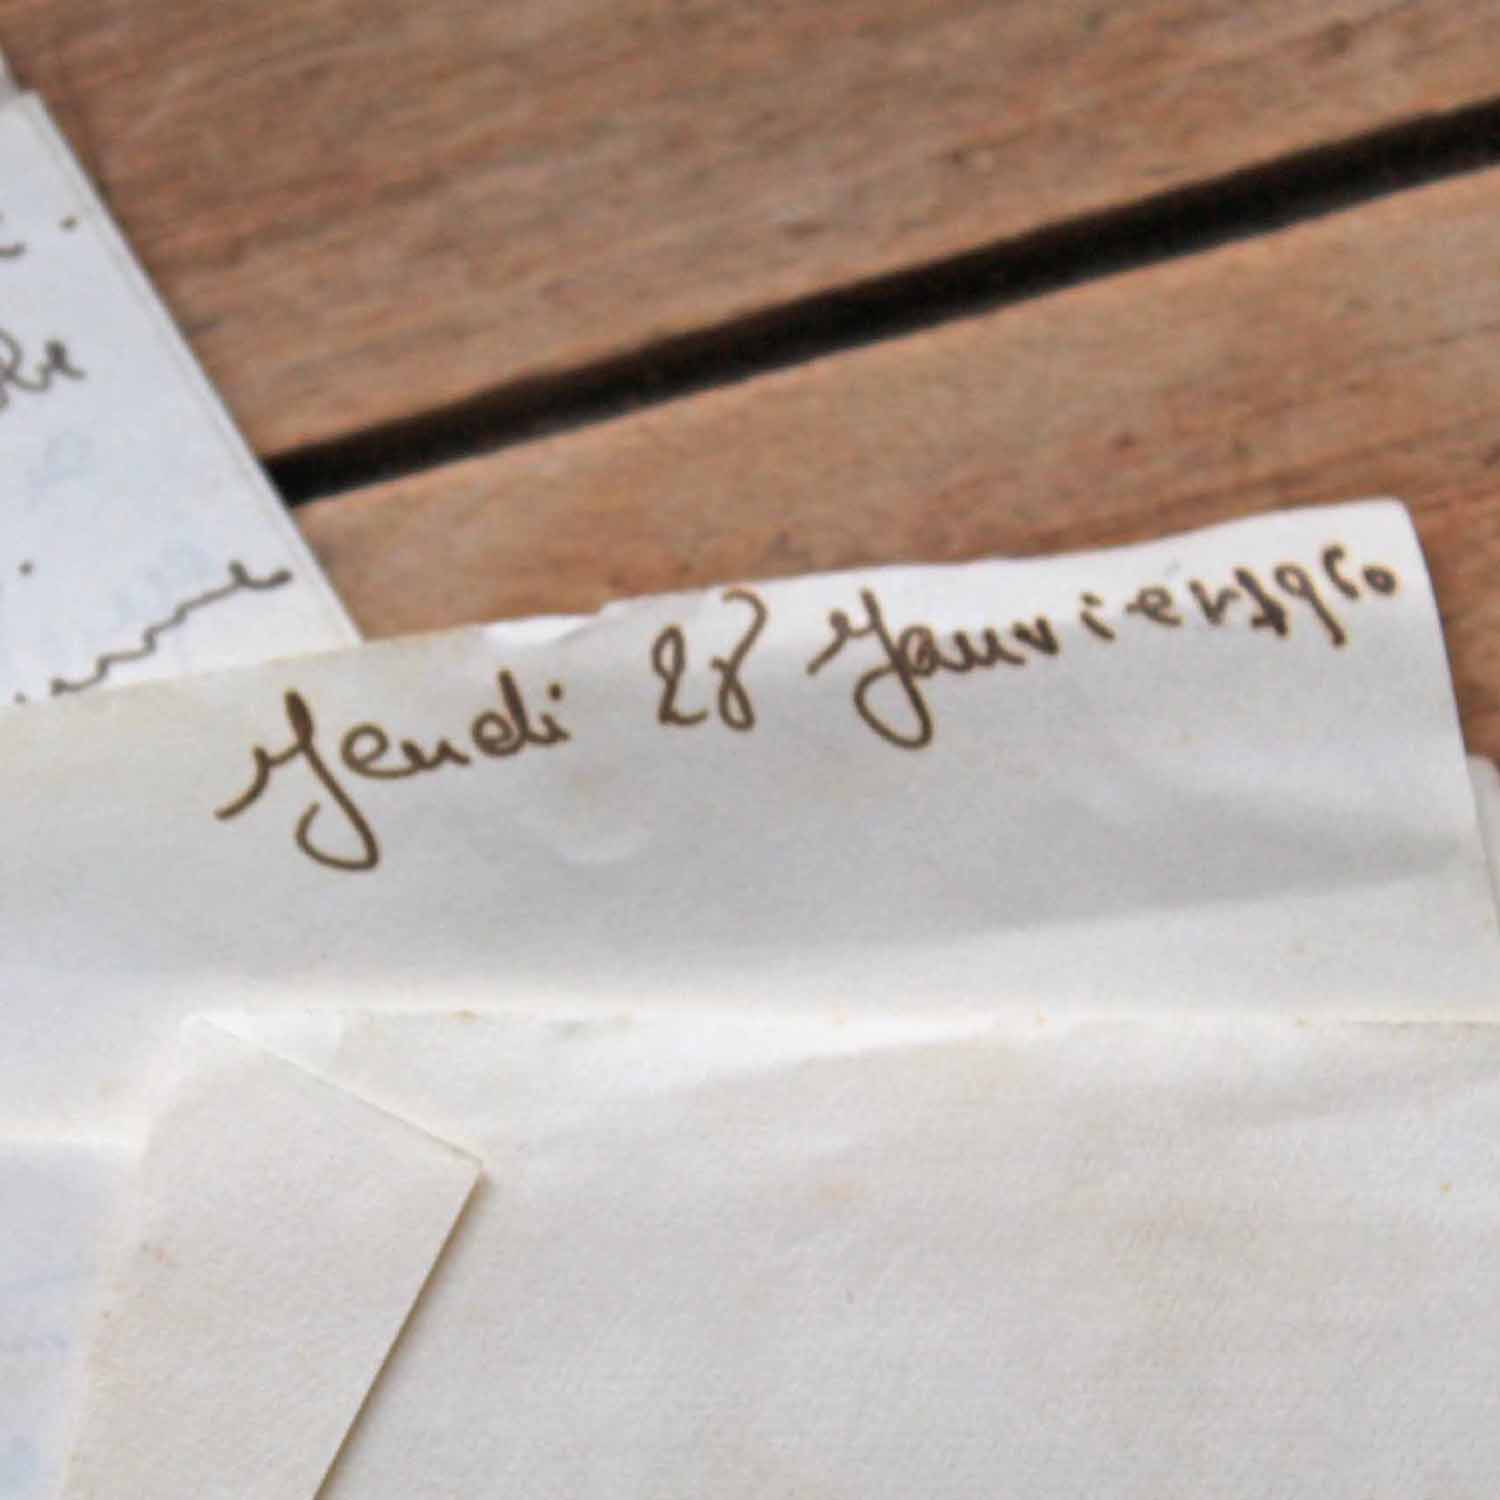 Jeudi 28 Janvier 1960